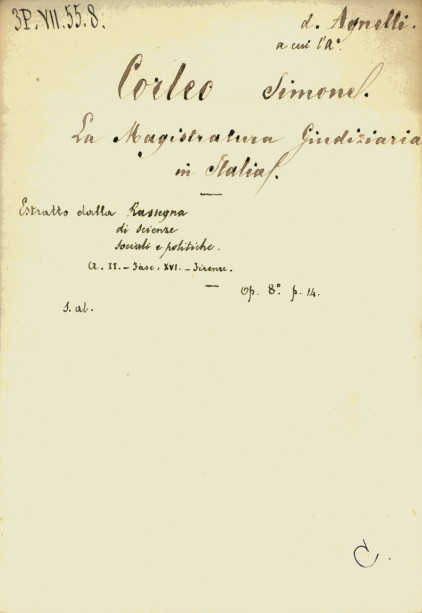 3P.VII.55.8.
d. Agnelli.
a cui l'A°.
Corleo Simone.
La Magistratura Giudiziaria
in Italia.
Estratto dalla Rassegna
di scienze
sociali e politiche.
A. II. - Fasc. XVI. - Firenze.
Op. 8° p. 14.
S. al.
C.